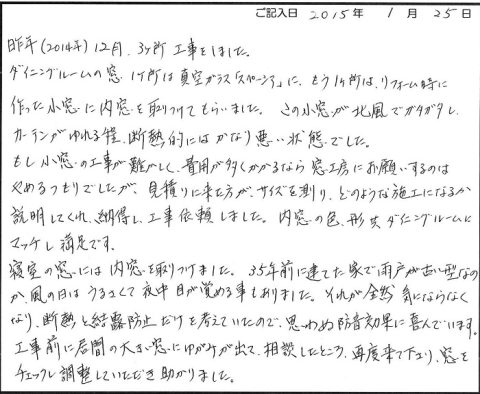 ご記入日 2015年 1月 25日
昨年(2014年)12月、3ヶ所工事をしました。
ダイニングルームの窓、1ヶ所は真空ガラス「スペーシア」に、もう1ヶ所は、リフォーム時に
作った小窓に内窓を取りつけてもらいました。この小窓が北風でガタガタし、
カーテンがゆれる程、断熱的にはかなり悪い状態でした。
もし小窓の工事が難かしく、費用が多くかかるなら窓工房にお願いするのは
やめるつもりでしたが、見積りに来た方がサイズを測り、どのような施工になるか
説明してくれ、納得し、工事依頼しました。内窓の色、形共ダイニングルームに
マッチし満足です。
寝室の窓には内窓を取りつけました。35年前に建てた家で雨戸が古い型なの
か、風の日はうるさくて夜中目が覚める事もありました。それが全然気にならなく
なり、断熱と結露防止だけを考えていたので、思わぬ防音効果に喜んでいます。
工事前に居間の大きい窓にゆがみが出て、相談したところ、再度来て下さり、窓を
チェックし調整していただき助かりました。